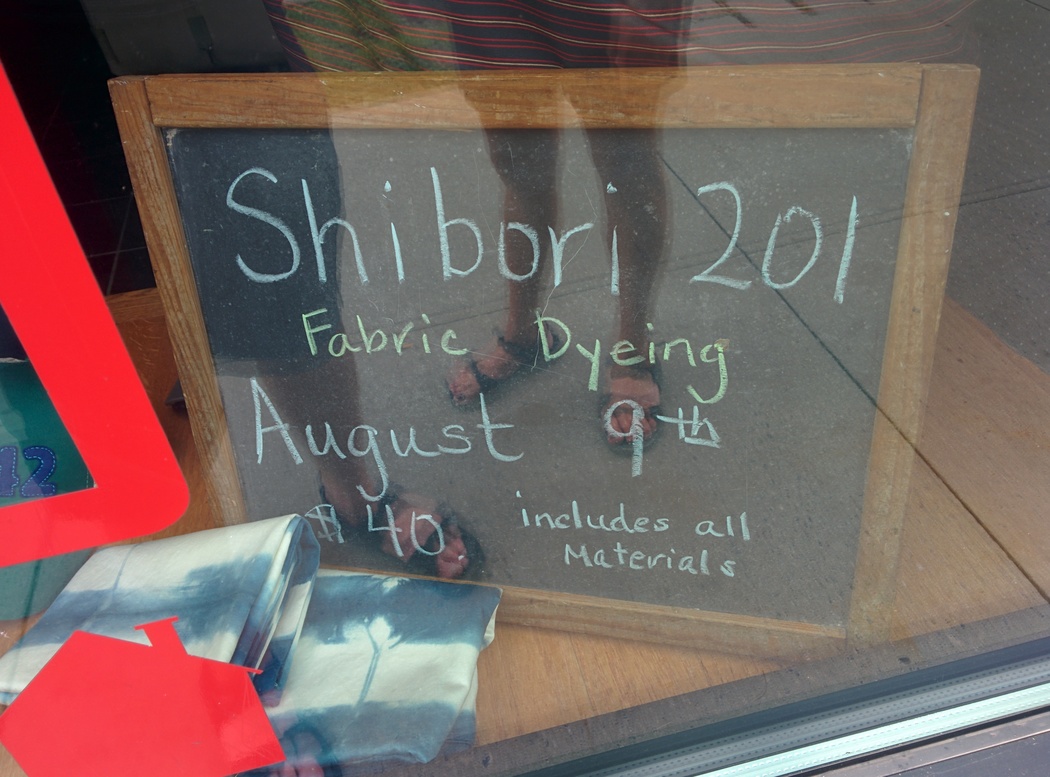 Shibori 201
Fabric Dyeing
August 9th
$40 includes all
Materials
42